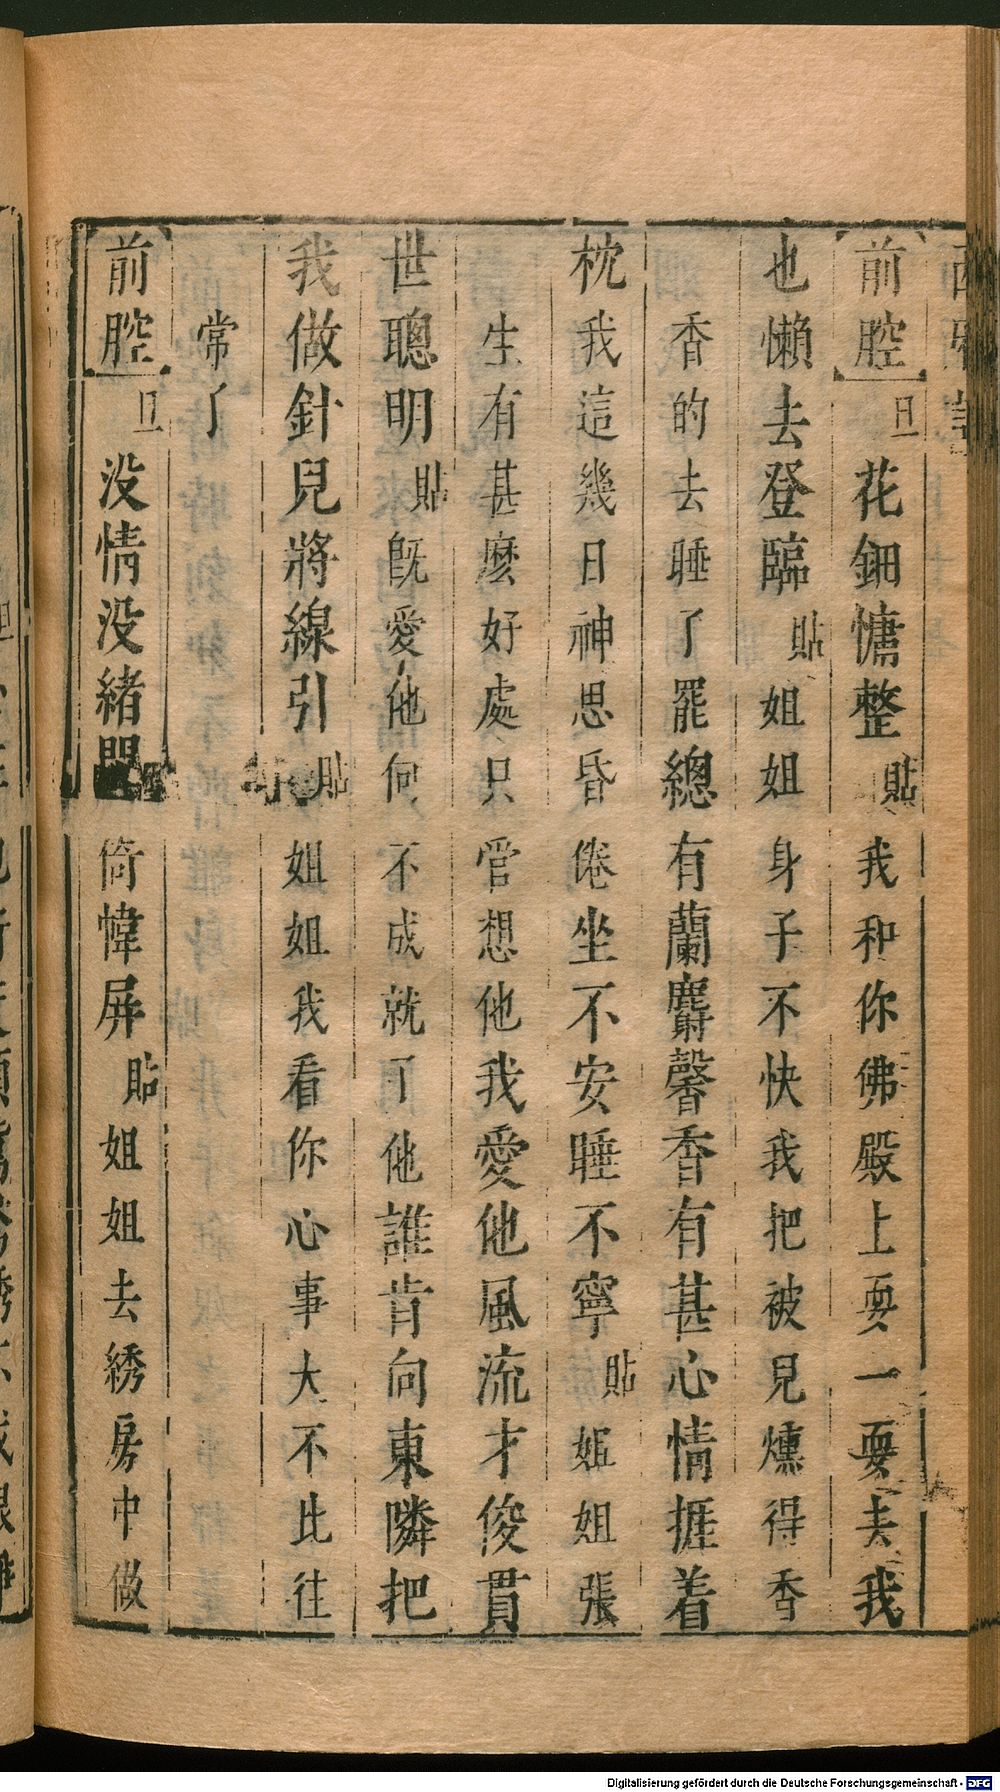 前腔旦花鈿慵整貼我和你佛殿上耍一耍去我
也懶去登臨貼姐姐身子不快我把被兒燻得香
香的去睡了罷總有蘭麝馨香有甚心情捱着
枕我這幾日神思昏倦坐不安睡不寧貼姐姐張
生有甚麽好處只管想他我愛他風流才俊貫
世聰明貼旣愛他何不成就了他誰肯向東隣把
我做針兒將線引貼姐姐我看你心事大不比往
常了
前腔旦没情没緒倚幃屏貼姐姐去綉房中做
Digitalisierung gefördert durch die Deutsche Forschungsgemeinschaft - DFG